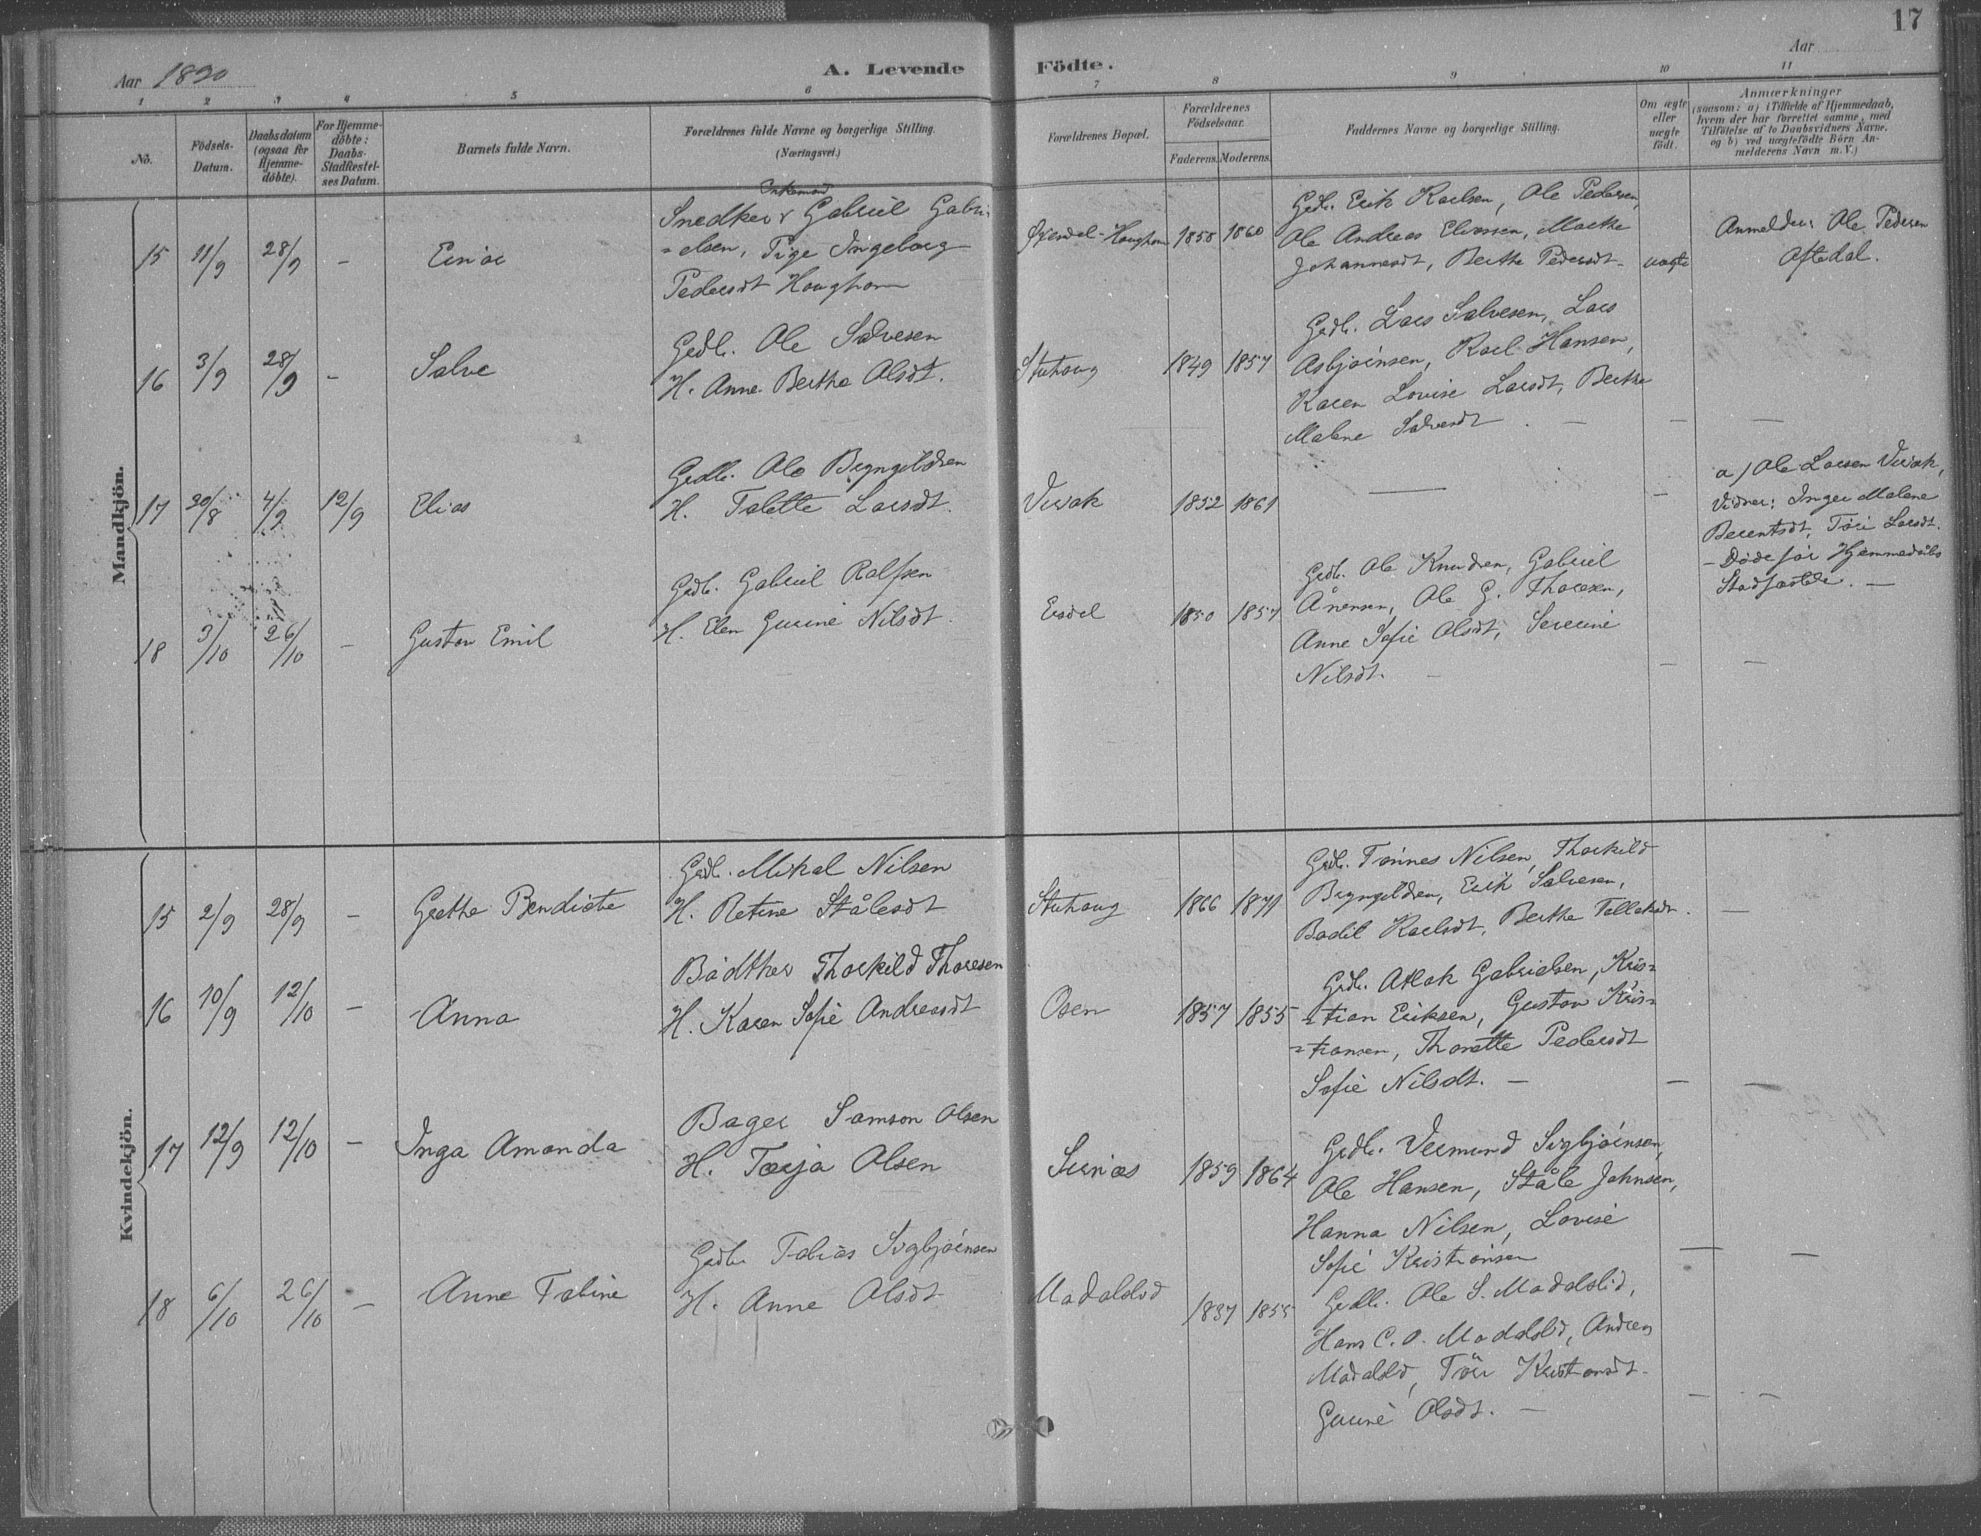 17
Aar 1890
A. Levende Födte.
Aar
1 2 3 4 5 6 7 8 9 10 11
No.
Födsels-Datum.
Daabsdatum (ogsaa for Hjemme-döbte).
For Hjemme-döbte: Daabs-Stadfæstel-ses Datum.
Barnets fulde Navn.
Forældrenes fulde Navne og borgerlige Stilling. (Næringsvei.)
Forældrenes Bopæl.
Forældrenes Födselsaar.
Faderens. Moderens.
Faddernes Navne og borgerlige Stilling.
Om ægte eller uægte födt.
Anmærkninger
(saasom: a) i Tilfælde af Hjemmedaab, hvem der har forrettet samme, med Tilföielse af to Daabsvidners Navne. og b) ved uægtefödte Börn An-melderens Navn m.V.)
Mandkjön.
15 11/9 28/9 - Einar
Enkemand
Snedker Gabriel Gabri-
=elsen, Pige Ingeborg
Pedersdt Haughom
1858 1860
Gdb. Erik Karlsen, Ole Pedersen,
Ole Andreas Eliassen, Marthe
Johannesdt, Berthe Pedersdt -
uægte
Anmelder: Ole Pedersen
Aftedal.
16 3/9 28/9 - Salve
Gdb. Ole Salvesen
H. Anne Berthe Olsdt.
Stuhaug 1849 1857
Gdb. Lars Salvesen, Lars
Asbjörnsen, Karl Hansen,
Karen Lovise Larsdt, Berthe
Malene Salvesdt . - - -
17 30/8 4/9 12/9 Elias
Gdb. Ole Bryngelsen
H. Talette Larsdt.
Virak 1852 1861 - -
a) Ole Larsen Virak,
Vidner: Inger Malene
Berentsdt, Töri Larsdt.
- Döde för Hjemmedaabs
Stadfæstelse. -
18 3/10 26/10 - Gustav Emil
Gdb. Gabriel Rolfsen
H. Elen Gurine Nilsdt.
Ersdal 1850 1857
Gdb. Ole Knudsen, Gabriel
Ånensen, Ole G. Thoresen,
Anne Sofie Olsdt, Sererine
Nilsdt. - - -
Kvindekjön.
15 2/9 28/9 - Grethe Bendicte
Gdb. Mikal Nilsen
H. Retine Stålesdt
Stuhaug 1866 1871
Gdb. Tönnes Nilsen, Thorkild
Bryngelsen, Erik Salvesen,
Bodil Karlsdt, Berthe Tollaksdt. -
16 10/9 12/10 - Anna
Bådtker Thorkild Thoresen
H. Karen Sofie Andreasdt
Osen 1857 1855
Gdb. Atlak Gabrielsen, Kris=
=tian Eriksen, Gustav Kris=
=tiansen, Thorette Pedersdt
Sofie Nilsdt. - - -
17 12/9 12/10 - Inga Amanda
Bager Samson Olsen
H. Tarja Olsen
Sirnæs 1859 1864
Gdb. Vermund Sigbjörnsen,
Ole Hansen, Ståle Johnsen,
Hanna Nilsen, Lovise
Sofie Kristiansen - -
18 6/10 26/10 - Anne Tobine
Gdb. Tobias Sigbjörnsen
H. Anne Olsdt
Madalslid 1837 1855
Gdb. Ole S. Madalslid,
Hans C. O. Madalslid, Andreas
Madalslid, Töri Kristiansdt.
Gurine Olsdt. - - -